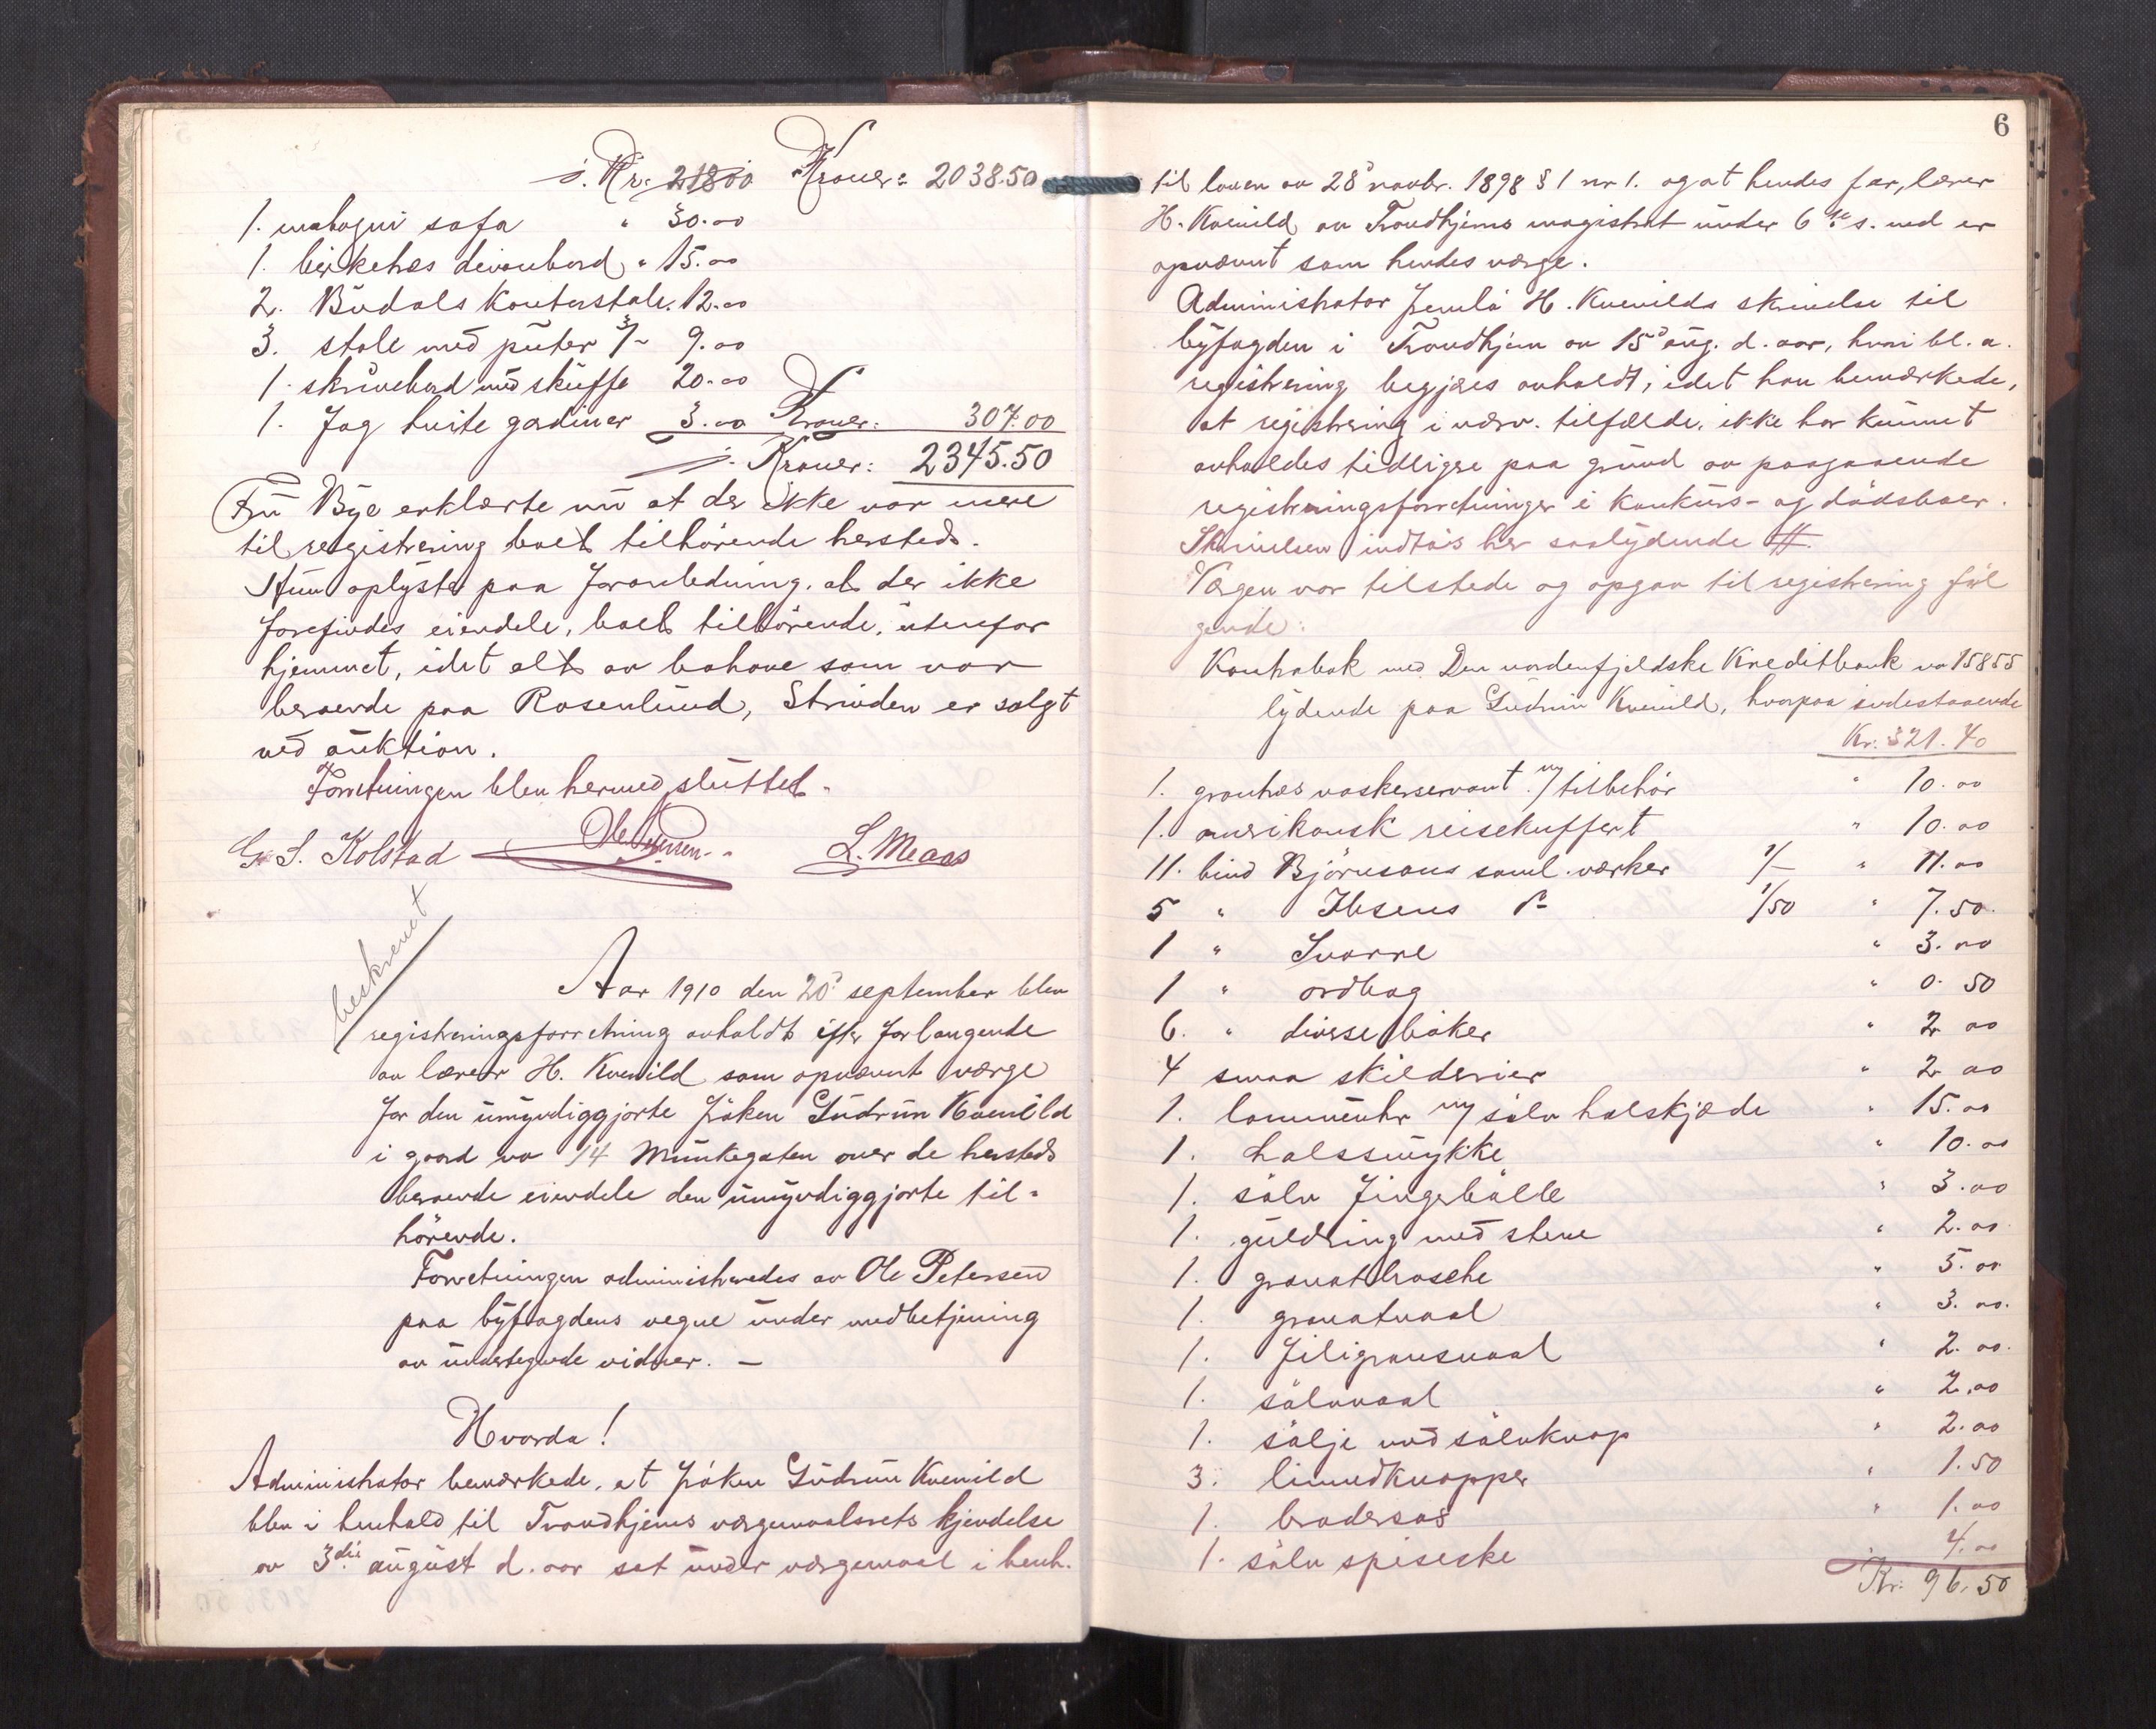 ÷ Kr. 218.00 Kroner: 2038.50
1. mahogni sofa " 30.00
1. birketræs divanbord " 15.00
2. Budals kontorstole. 12.00
3. stole med puter 3/- 9.00
1. skrivebord med skuffe 20.00
1. fag hvite gardiner 3.00 Kroner: 307.00
÷ Kroner: 2345.50
Fru Bye erklærte nu at der ikke var mere
til registrering boet tilhörende hersteds.
Hun oplyste paa foranledning, at der ikke
forefindes eiendele, boet tilhörende, utenfor
hjemmet, idet alt av bohave som var
beroende paa Rosenlund, Strinden er solgt
ved auktion.
Forretningen blev hermed sluttet.
G. S. Kolstad Ole Petersen L. Maas
beskrevet
Aar 1910 den 20' september blev
registreringsforretning avholdt efter forlangende
av lærer H. Kvenild som opnævnt værge
for den umyndiggjorte fröken Gudrun Kvenild
i gaard no 14 Munkegaten over de hersteds
beroende eiendele den umyndiggjorte til-
hörende.
Forretningen administreredes av Ole Petersen
paa byfogdens vegne under medbetjening
av undertegnede vidner. —
Hvorda!
Administrator bemærkede, at fröken Gudrun Kvenild
blev i henhold til Trondhjems vergemaalsrets kjendelse
av 3die august d. aar sat under vergemaal i henh.
6
til loven av 28' novbr. 1898 § 1 nr 1. og at hendes far, lærer
H. Kvenild av Trondhjems magistrat under 6te s. md er
opnævnt som hendes værge.
Administrator fremla H. Kvenilds skrivelse til
byfogden i Trondhjem av 15' aug. d. aar, hvori bl. a.
registrering begjæres avholdt, idet han bemærkede,
at registrering i nærv. tilfælde, ikke har kunnet
avholdes tidligere paa grund av paagaaende
registreringsforretninger i konkurs- og dödsboer.
Skrivelsen indtas her saalydende #.
Vergen var tilstede og opgav til registrering föl
gende:
Kontrabok med Den nordenfjeldske Kreditbank no 15855
lydende paa Gudrun Kvenild, hvorpaa indestaaende
Kr. 321.40
1. grantræs vaskerservant m/tilbehör " 10.00
1. amerikansk reisekuffert " 10.00
11. bind Björnsons saml. værker 1/- " 11.00
5 " Ibsens 1/50 " 7.50
1 " Snorre " 3.00
1 " ordbog " 0.50
6. " diverse böker " 2.00
4 smaa skilderier " 2.00
1. lommeuhr m/ sölv halskjæde " 15.00
1. halssmykke " 10.00
1. sölv fingerbölle " 3.00
1. guldring med stene " 2.00
1. granatbrosche " 5.00
1. granatnaal " 3.00.
1. filigransnaal " 2.00.
1. sölvnaal " 2.00
1. sölje med sölvknap " 2.00
3. linnedknapper " 1.50
1. brodersas " 1.00
1. sölv spiseske 4.00
Kr. 96.50